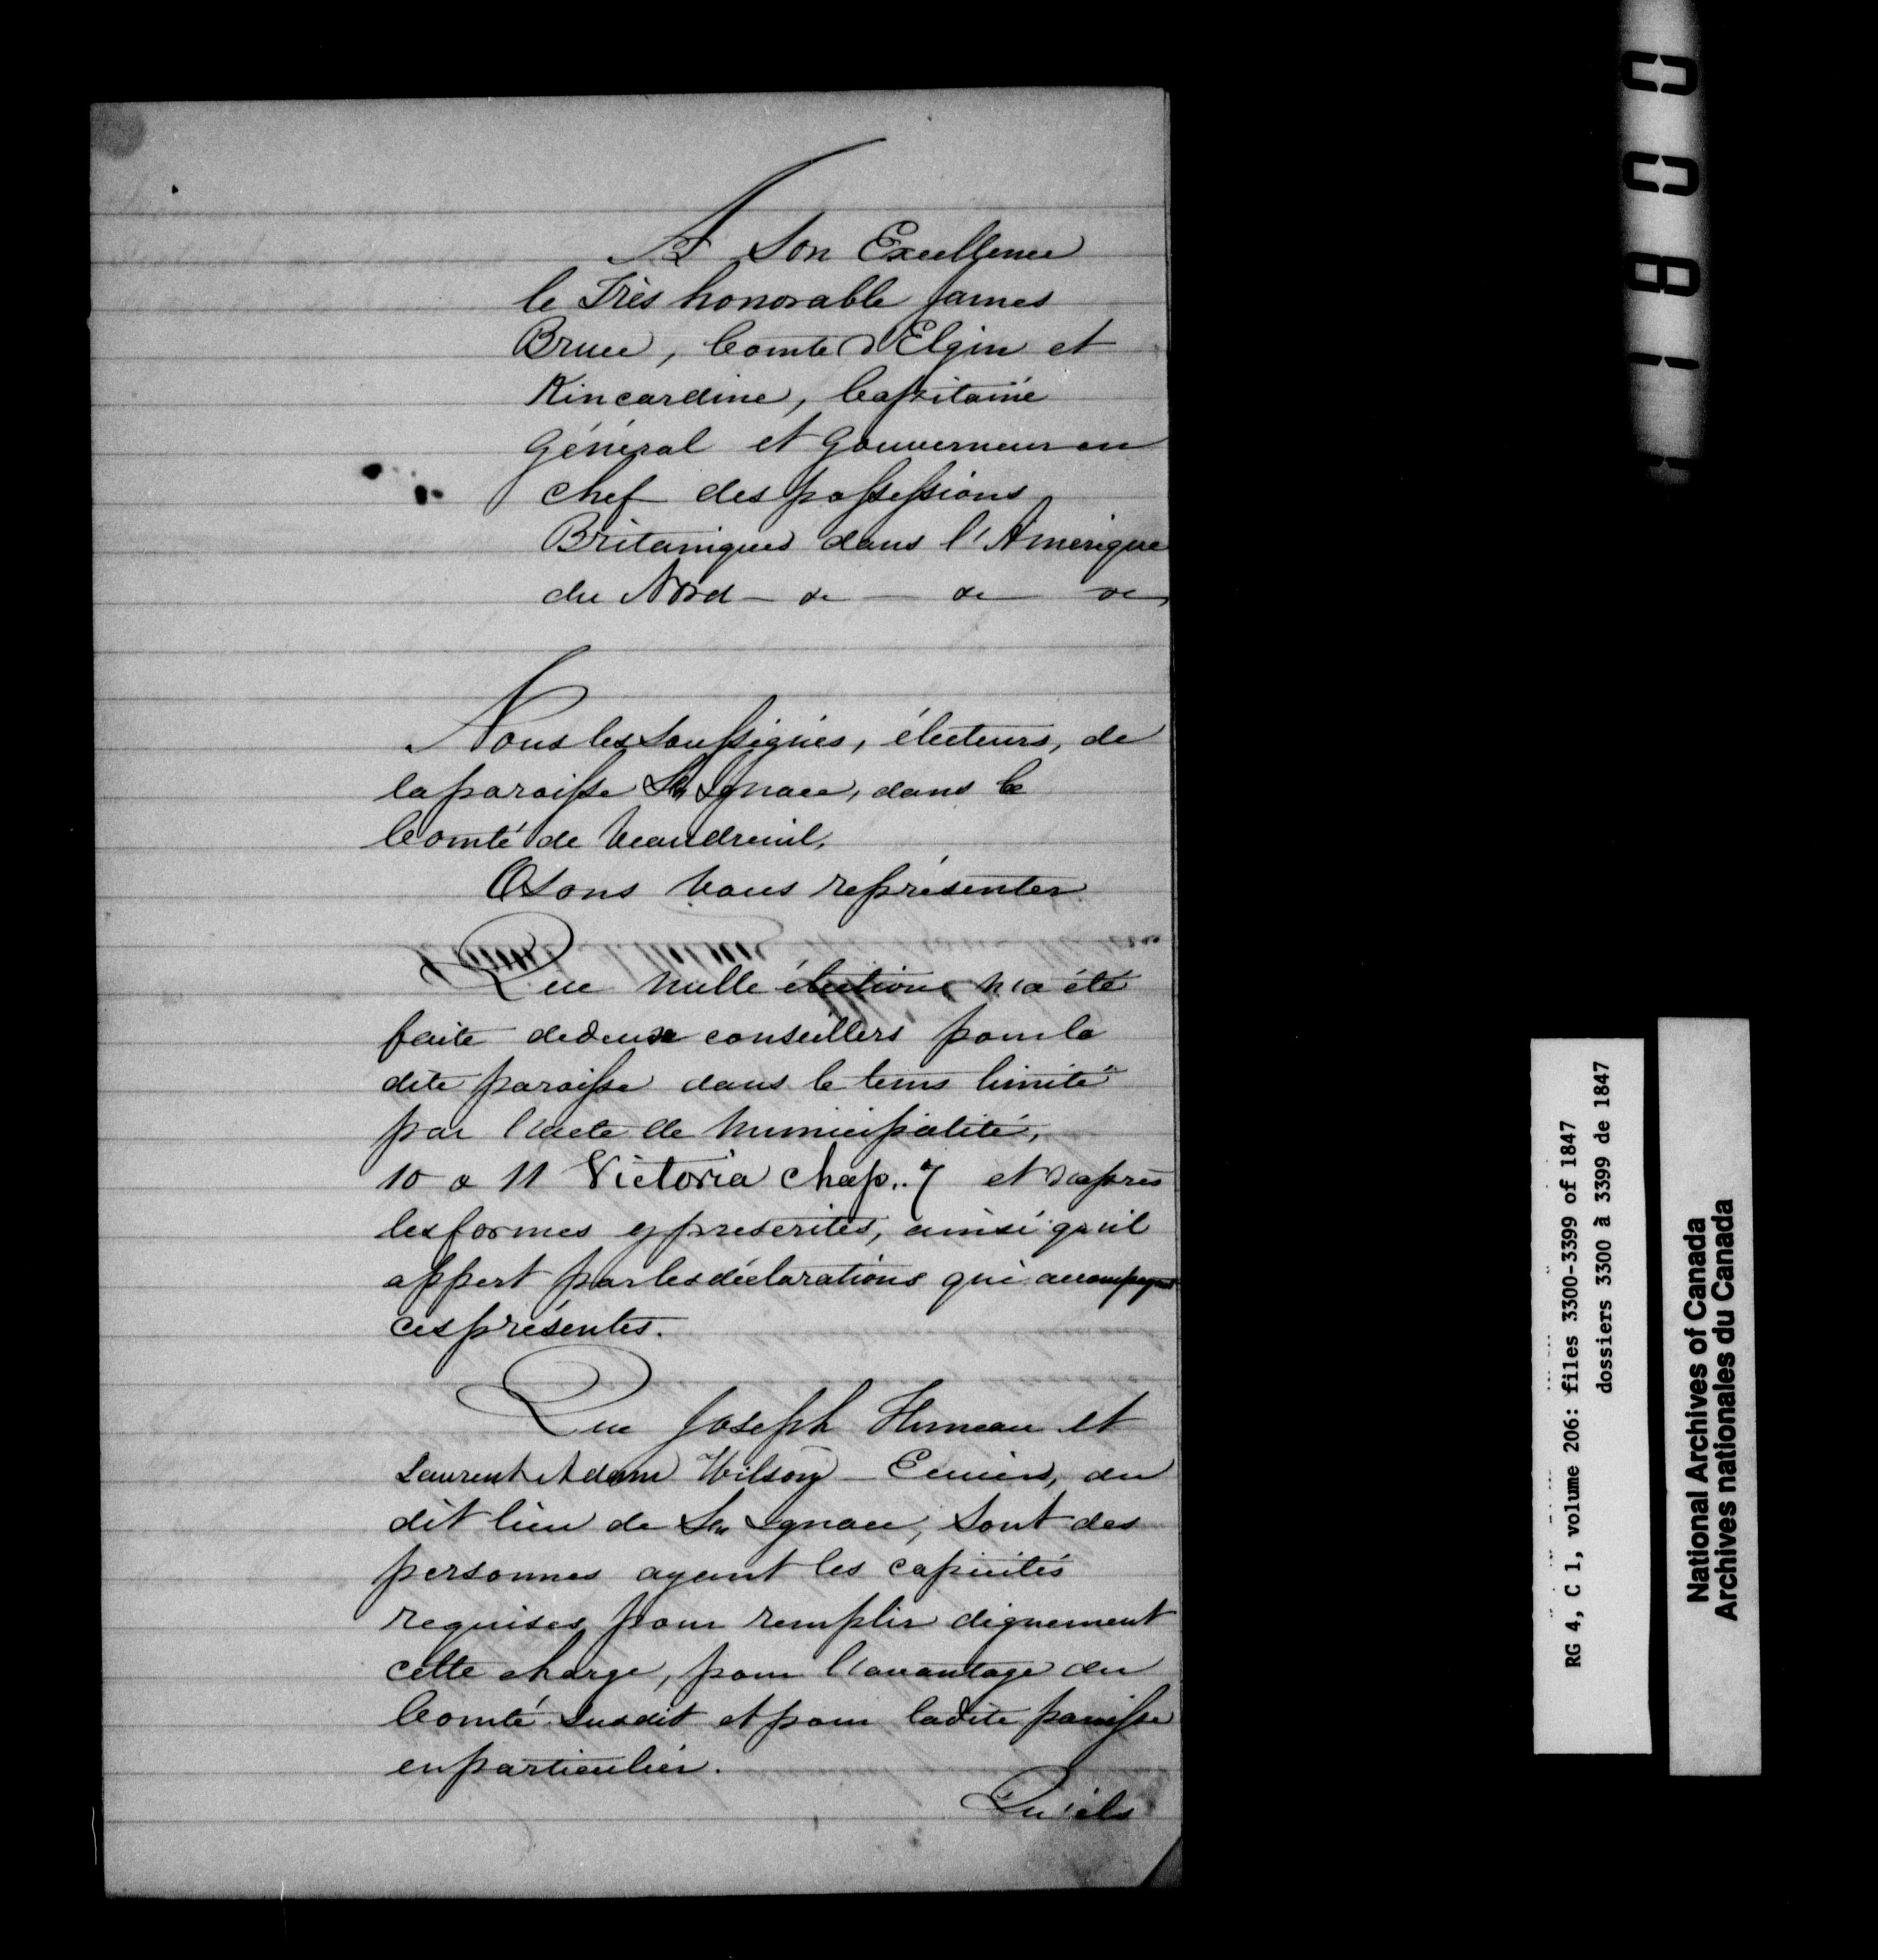 A Son Excellence
le Très honorable James
Bruce, Comte d'Elgin et
Kincardine, Capitaine
Général et Gouverneur en
chef des possessions
Britaniques dans l'Amérique
du Nord — &c — &c &c
Nous les soussignés, électeurs, de
la paroisse St Ignace, dans le
Comté de Vaudreuil,
Osons vous représenter
Que nulle élection n'a été
faite de deux conseillers pour la
dite paroisse dans le tems limité
par l'acte de municipalité,
10 & 11 Victoria Chap. 7 et d'après
les formes y prescrites, ainsi qu'il
appert par les déclarations qui accompagnent
ces présentes.
Que Joseph et
Laurent Adam Wilson Ecuiers, du
dit lieu de St Ignace, sont des
personnes ayant les capacités
requises pour remplir dignement
cette charge, pour l'avantage du
Comté susdit et pour la dite paroisse
en particulier.
Qu'ils
0081
RG 4, C 1, volume 206: files 3300-3399 of 1847
dossiers 3300 à 3399 de 1847
National Archives of Canada
Archives nationales du Canada